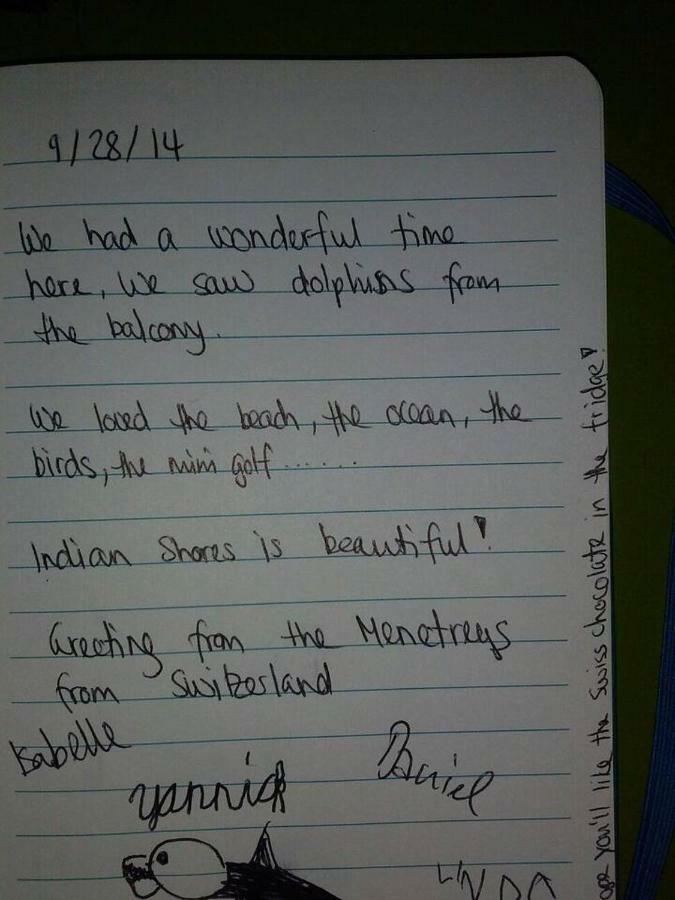 9/28/14
We had a wonderful time
here, we saw dolphins from
the balcony.
We loved the beach, the ocean, the
birds, the mini golf ......
Indian Shores is beautiful!
Greeting from the Menetreys
from Switzerland
Isabelle
Yannick
Daniel
LINDA
you'll like the Swiss chocolate in the fridge!